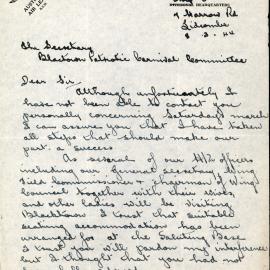 DIVISIONAL HEADQUARTERS
4 Harrow Rd
Lidcombe
8.3.44
The Secretary
Blacktown Patriotic Carnival Committee
Dear Sir
Although unfortunately I
have not been able to contact you
personally concerning Saturdays march
I can assure you that I have taken
all steps that should make our
part a success
As several of our H/Q officers
including our General Secretary Wing
Field Commissioner & Chairman of Wing
Council together with their wives,
and other ladies will be visiting
Blacktown I trust that suitable
seating accommodation has been
arranged for at the Saluting Base
I trust you will pardon my interference
but I thought that you had not